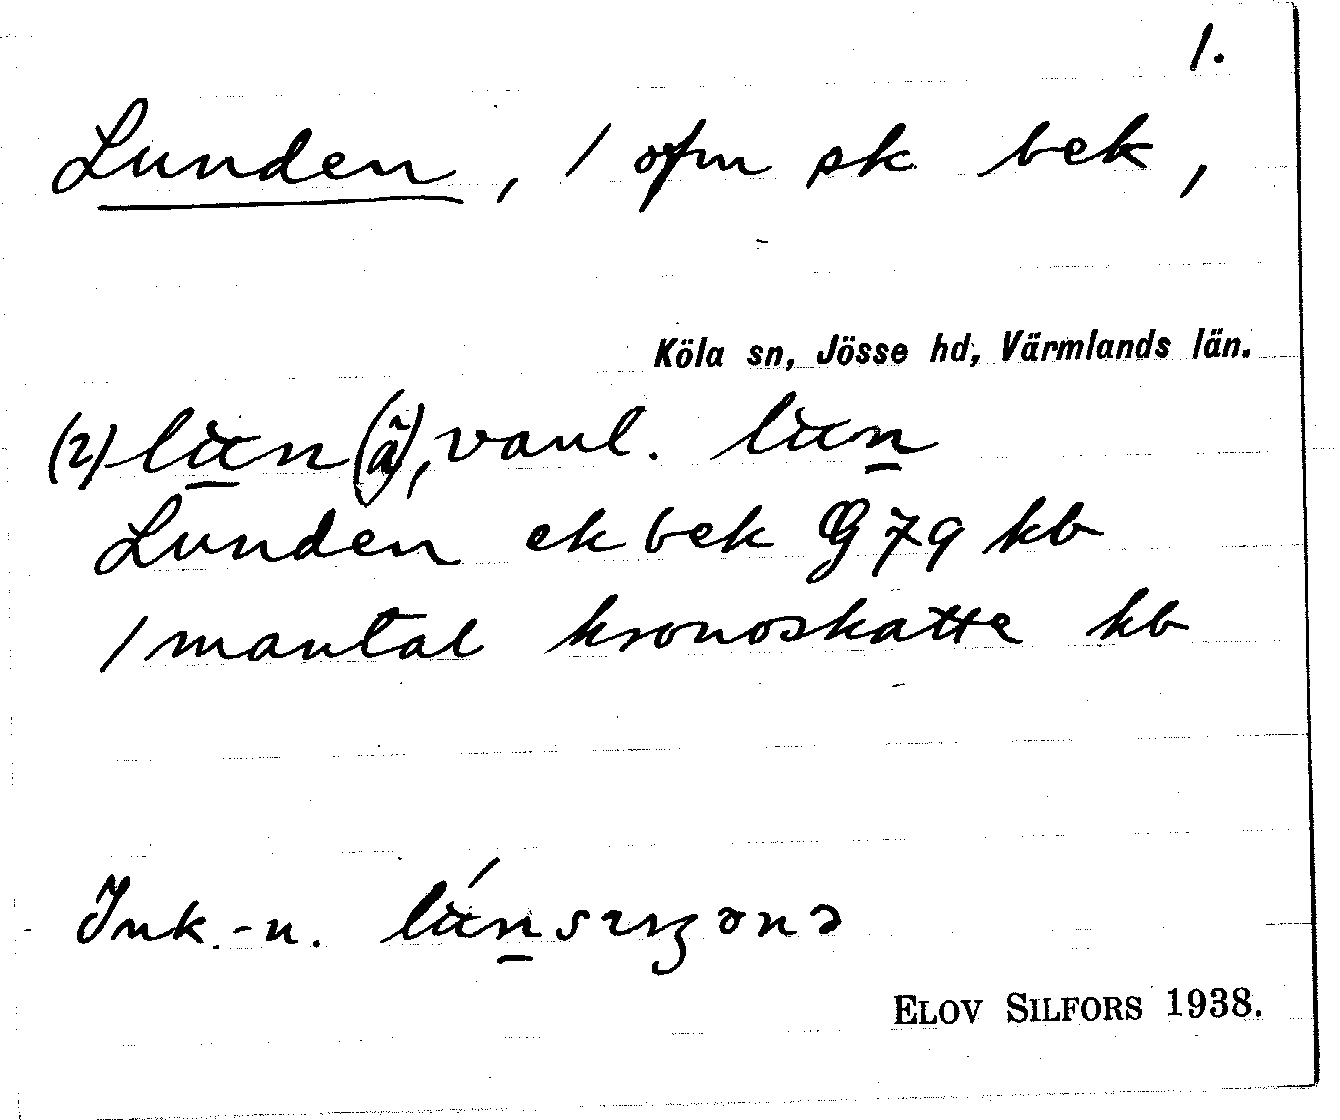 1.
Lunden, 1 ofm sk bek,
Köla sn, Jösse hd, Värmlands län.
(2) vanl.
Lunden ek bek G 79 kb
1 mantal kronoskatte kb
Ink.-n.
ELOV SILFORS 1938.